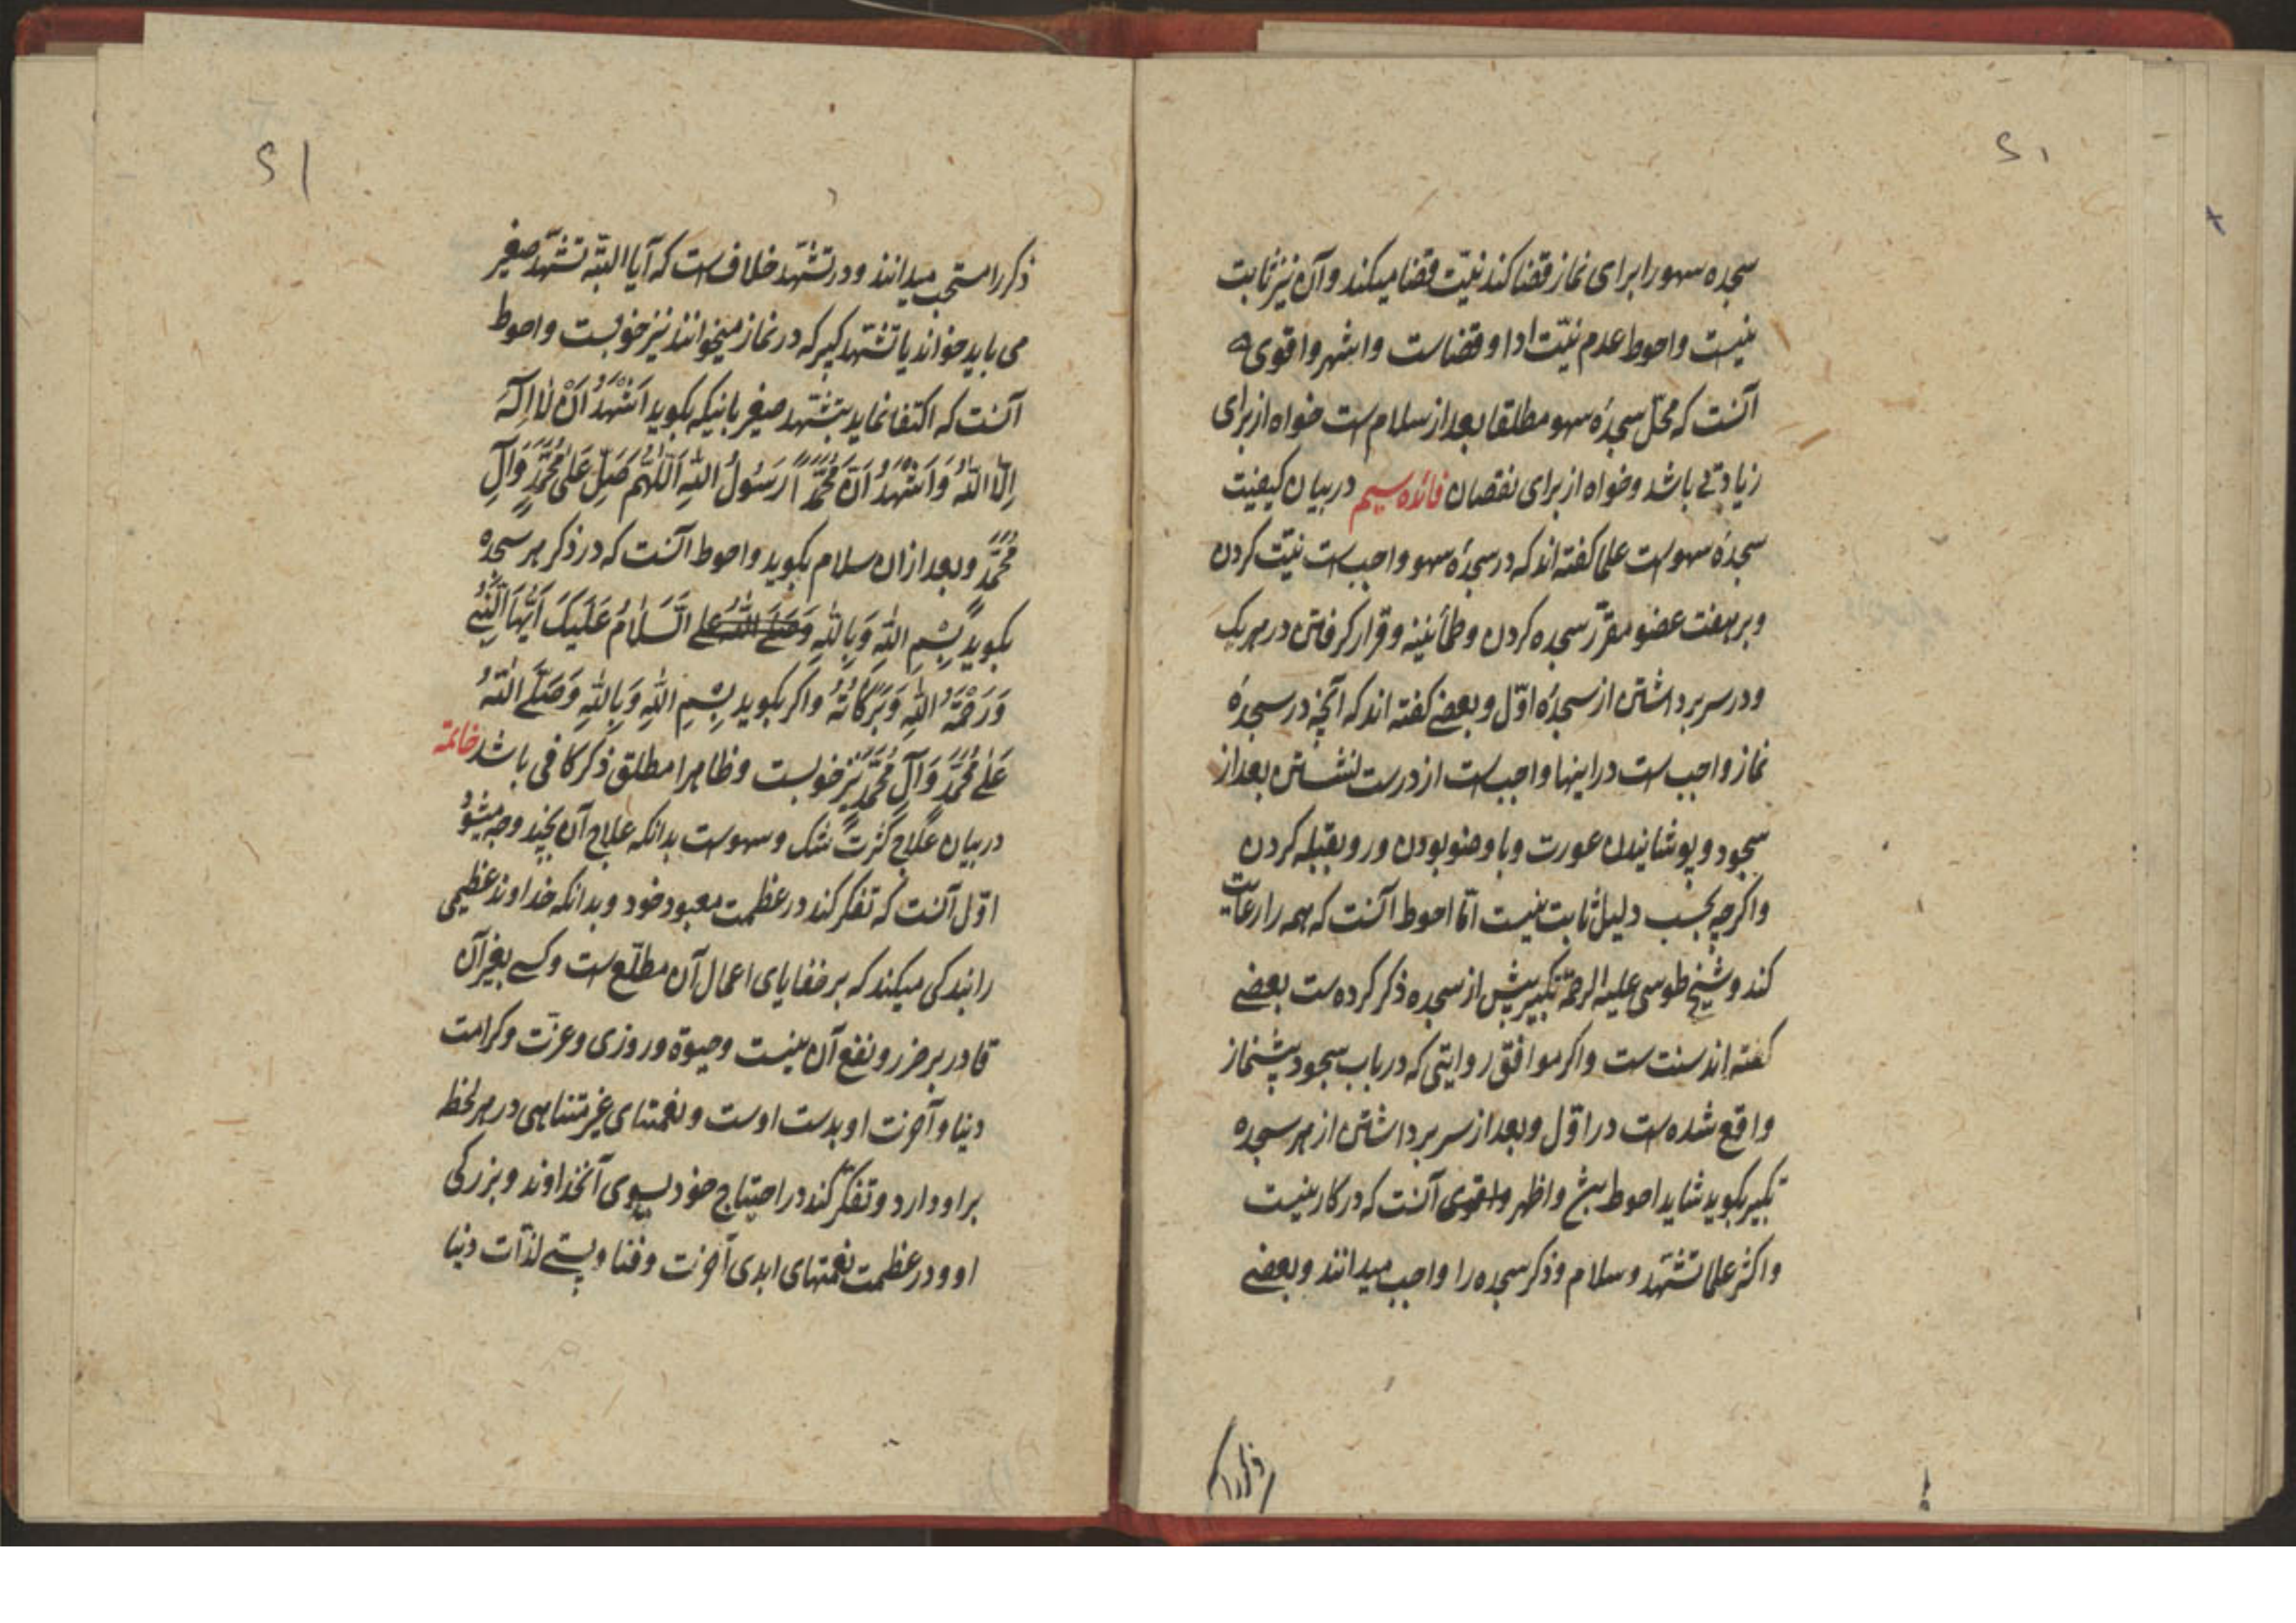 سجده سهو را برای نماز قضا کند نیّت قضا میکند و آن نیز ثابت
نیست و احوط عدم نیّت ادا و قضاست و اشهر و اقوی
آنست که محلّ سجدۀ سهو مطلقا بعد از سلام است خواه از برای
زیادتی باشد و خواه از برای نقصان فائده سیم در بیان کیفیت
سجدۀ سهو است علما کفته اند که در سجدۀ سهو واجب است نیّت کردن
و بر هفت عضو مقرّر سجده کردن و طمأنینه و قرار کرفتن در هر یک
و در سر برداشتن از سجدۀ اوّل و بعضی کفته اند که آنچه در سجدۀ
نماز واجب است در اینها واجب است از درست نشستن بعد از
سجود و پوشانیدن عورت و با وضو بودن و رو بقبله کردن
و اکرچه بحسب دلیل ثابت نیست امّا احوط آنست که همه را رعایت
کند و شیخ طوسی علیه الرحمه تکبیر پیش از سجده ذکر کرده است بعضی
کفته اند سنت است و اکر موافق روایتی که در باب سجود پیشنماز
واقع شده است در اوّل و بعد از سر برداشتن از هر سجده
تکبیر بکوید شاید احوط باشد و اظهر و اقوی آنست که در کار نیست
و اکثر علما تشهّد و سلام و ذکر سجده را واجب میدانند و بعضی
ذکر را مستحب
۲۱
ذکر را مستحب میدانند و در تشهّد خلاف است که آیا البتّه تشهّد صغیر
می باید خواند یا تشهّد کبیر که در نماز میخوانند نیز خوبست و احوط
آنست که اکتفا نماید بتشهّد صغیر باینکه بکوید اَشْهَدُ اَنْ لٰا اِلٰهَ
اِلَّا اللّٰهُ وَ اَشْهَدُ اَنَّ مُحَمَّداً رَسُولُ اللّٰهِ اَللّٰهُمَّ صَلِّ عَلٰی مُحَمَّدٍ وَ آلِ
مُحَمَّدٍ و بعد از ان سلام بکوید و احوط آنست که در ذکر هر سجده
بکوید بِسْمِ اللّٰهِ وَ بِاللّٰهِ وَصَلَّی اللّٰهُ عَلی اَلسَّلٰامُ عَلَیکَ اَیُّهَا النَّبِیُّ
وَ رَحْمَةُ اللّٰهِ وَ بَرَکٰاتُهُ و اکر بکوید بِسْمِ اللّٰهِ وَ بِاللّٰهِ وَ صَلَّی اللّٰهُ
عَلٰی مُحَمَّدٍ وَ آلِ مُحَمَّدٍ نیز خوبست و ظاهرا مطلق ذکر کافی باشد خاتمه
در بیان علاج کثرت شک و سهو است بدانکه علاج آن بچند وجه میشود
اوّل آنست که تفکر کند در عظمت معبود خود و بدانکه خداوند عظیمی
را بندکی میکند که بر خفایای اعمال آن مطلّع است و کسی بغیر آن
قادر بر ضرر و نفع آن نیست و حیوة و روزی و عزّت و کرامت
دنیا و آخرت او بدست اوست و نعمتهای غیر متناهی در هر لحظه
بر او دارد و تفکّر کند در احتیاج خود بسوی آنخداوند و بزرکی
او و در عظمت نعمتهای ابدی آخرت و فنا و پستی لذّات دنیا